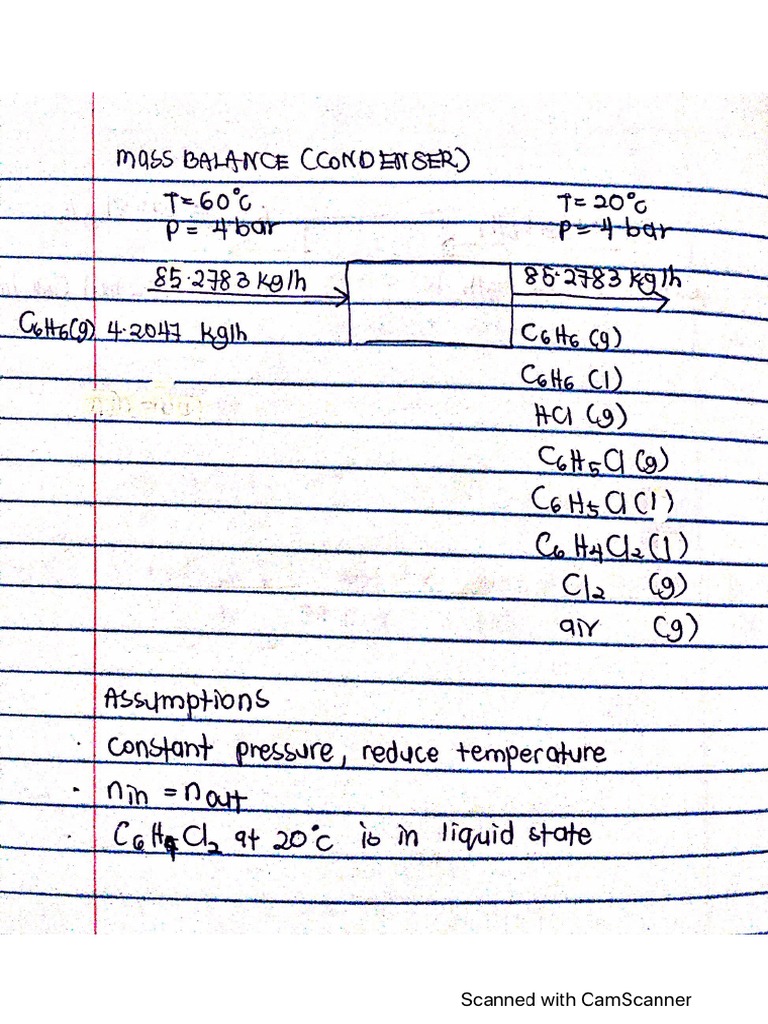 MASS BALANCE (CONDENSER)
T=60°C. T= 20°C
P= 4 bar P= 4 bar
85.2783 kg/h 85.2783 kg/h
C6H6(g) 4.2047 kg/h C6H6 (g)
C6H6 (l)
HCl (g)
C6H5Cl (g)
C6H5Cl (l)
C6H4Cl2 (l)
Cl2 (g)
air (g)
Assumptions
· constant pressure, reduce temperature
· nin = nout
· C6H4Cl2 at 20°C is in liquid state
Scanned with CamScanner